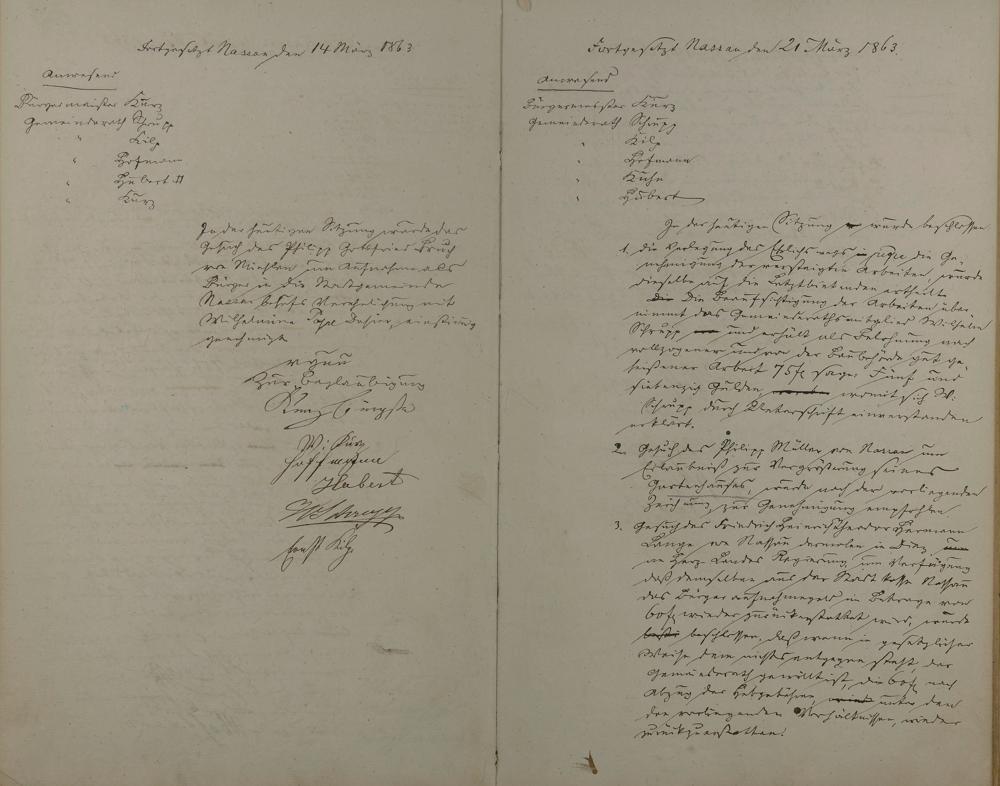 Fortgesetzt Nassau den 14 März 1863.
Anwesend
Bürgermeister Kurz
Gemeinderath Schrupp
" Kilp
" Hofmann
" Hubert II
" Kurz
In der heutigen Sitzung wurde das
Gesuch des Philipp Gottfried Bruch
von Miehlen um Aufnahme als
Bürger in die Stadtgemeinde
Nassau behufs Verehelichung mit
Wilhelmine Dahier, einstimmig
genehmigt
Zur Beglaubigung
Kurz Bürgstr
W: Kurz
Hoffmann
Hubert
W Schrupp
Ernst Kilp
Fortgesetzt Nassau den 21 März 1863.
Anwesend
Bürgermeister Kurz
Gemeinderath Schrupp
" Kilp
" Hofmann
" Kuhn
" Hubert
In der heutigen Sitzung wurde beschlossen
1. die Verlegung des wegs in die Ge-
nehmigung der versteigten Arbeiten, wurde
dieselbe auf die Letztbietenden ertheilt
Die Beaufsichtigung der Arbeiten über-
nimmt das Gemeinderathsmitglied Wilhelm
Schrupp und erhält als Belohnung nach
vollzogener und von der Baubehörde gut ge-
heißener Arbeit 75 fl sage: Fünf und
siebenzig Gulden womit sich W:
Schrupp durch Unterschrift einverstanden
erklärt.
2. Gesuch des Philipp Müller von Nassau um
Erlaubniß zur Vergrößerung seines
Gartenhauses, wurde nach der vorliegenden
Zeichnung zur Genehmigung empfohlen
3. Gesuch des Friedrich Heinrich Theodor Hermann
Lange von Nassau dermalen in Diez,
an Herz. Landes Regierung um Verfügung
daß demselben aus der Stadtkasse Nassau
das Bürgeraufnahmegeld im Betrage von
60 fl wieder zurückerstattet wird, wurde
beschlossen, daß wenn in gesetzlicher
Weise dem nichts entgegen steht, der
Gemeinderath gewillt ist, die 60 fl nach
Abzug der Hebgebühren unter den
den vorliegenden Verhältnissen, wieder
zurückzuerstatten.